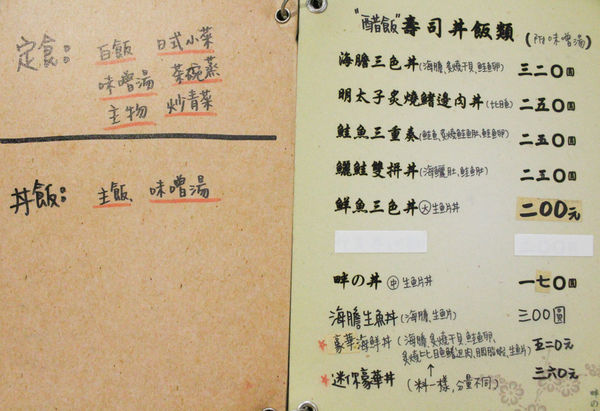 定食：白飯 日式小菜
味噌湯 茶碗蒸
主物 炒青菜
丼飯：主飯 味噌湯
"醋飯"壽司丼飯類(附味噌湯)
海膽三色丼(海膽,炙燒干貝,鮭魚卵) 三二〇圓
明太子炙燒鰭邊肉丼(比目魚) 二五〇圓
鮭魚三重奏(鮭魚,炙燒鮭魚肚,鮭魚卵) 二五〇圓
鱺鮭雙拼丼(海鱺肚,鮭魚肚) 二五〇圓
鮮魚三色丼(大)生魚片丼 二00元
畔の丼(中)生魚片丼 一七〇圓
海膽生魚丼(海膽,生魚片) 三00圓
*豪華海鮮丼(海膽,炙燒干貝,鮭魚卵,
炙燒比目魚鰭邊肉,胭脂蝦,生魚片) 五二0元
*迷你豪華丼(料一樣,分量不同) 三六0元
畔の